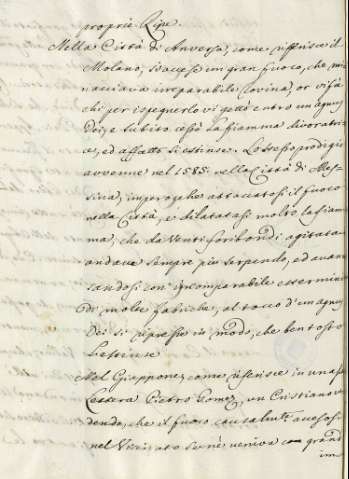 proprie Ripe
Nella Città di Anversa, come riferisce il
Molano, s'accese un gran fuoco, che mi
nacciava irreparabile rovina, or vi fù
chi per ispegnerlo vi gettò entro un agnus
Dei, e subito cessò la fiamma divoratri
ce, ed affatto si estinse. Lo stesso prodigio
avvenne nel 1585. nella Città di Mes
sina, imperoche attaccatosi il fuoco
nella Città, e dilatatosi molto la fiam
ma, che da Venti furibondi agitata
andava sempre più serpendo, ed avan
zandosi con incomparabile esterminio
di molte fabriche, al tocco d'un agnus
Dei si ripresse in modo, che ben tosto
s'estinse
Nel Giappone, come riferisce in una
Lettera Pietro Gomez, un Cristiano ve
dendo, che il fuoco casualmte accesosi
nel Vicinato sene veniva con grand
im